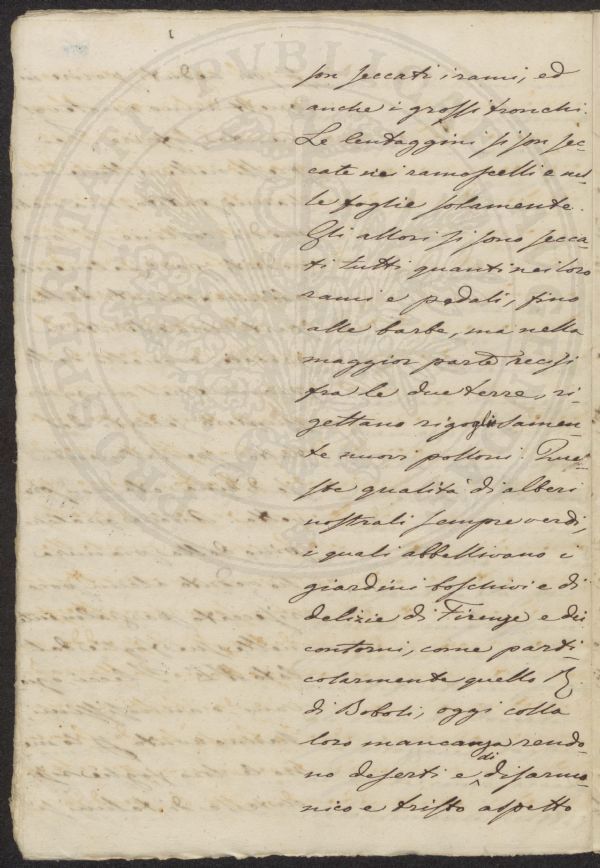 son seccati i rami, ed
anche i grossi tronchi.
Le lentaggini si son sec-
cate nei ramoscelli e nel-
le foglie solamente.
Gli allori si sono secca-
ti tutti quanti nei loro
rami e pedali, fino
alle barbe, ma nella
maggior parte recisi
fra le due terre, ri-
gettano rigogliosamen-
te nuovi polloni. Que-
ste qualità di alberi
nostrali sempre verdi,
i quali abbellivano i
giardini boschivi e di
delizie di Firenze e dei
contorni, come parti-
colarmente quello R.
di Boboli, oggi colla
loro mancanza rendo-
no deserti e di disarmo-
nico e tristo aspetto
PROSPERITATI PVBLICAE